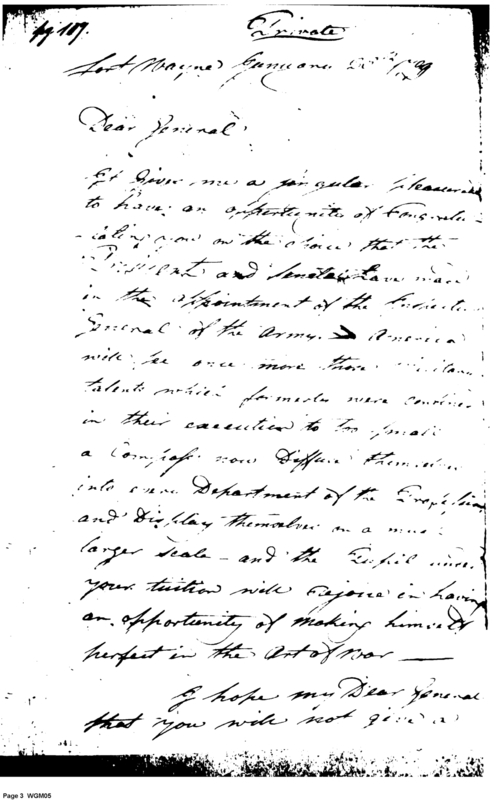 pg 109.
Private
Fort Wayne January
Dear General
It Gives me a singular pleasure
to have an opportunity of Congratu-
-lating you on the choice that the
President and Senate have made
in the appointment of the Inspector
General of the Army. America
will see once more those
talents which formerly were confined
in their execution to too small
a Compass now Diffuse themselves
into every Department of the Profession
and Display themselves on a much
larger scale - and the Pupil under
your tuition will rejoice in having
an opportunity of making himself
perfect in the Art of War
I hope my Dear General
that you will not give a
Page 3 WGM05